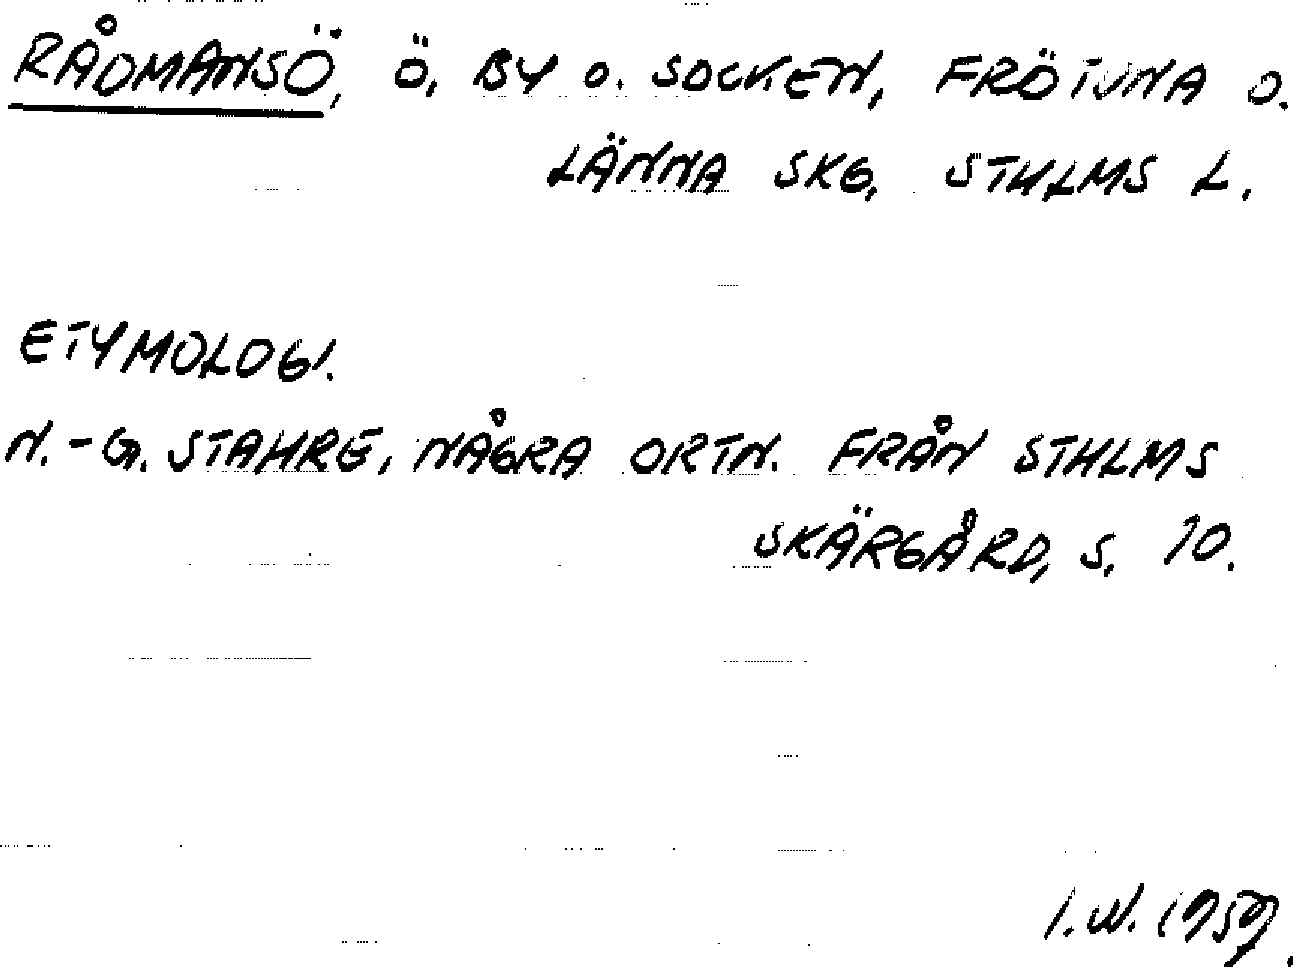 RÅDMANSÖ, Ö, BY O. SOCKEN, FRÖTUNA O.
LÄNNA SKG, STHLMS L.
ETYMOLOGI.
N.-G. STAHRE, NÅGRA ORTN. FRÅN STHLMS
SKÄRGÅRD, S. 10.
I.W. 1959.